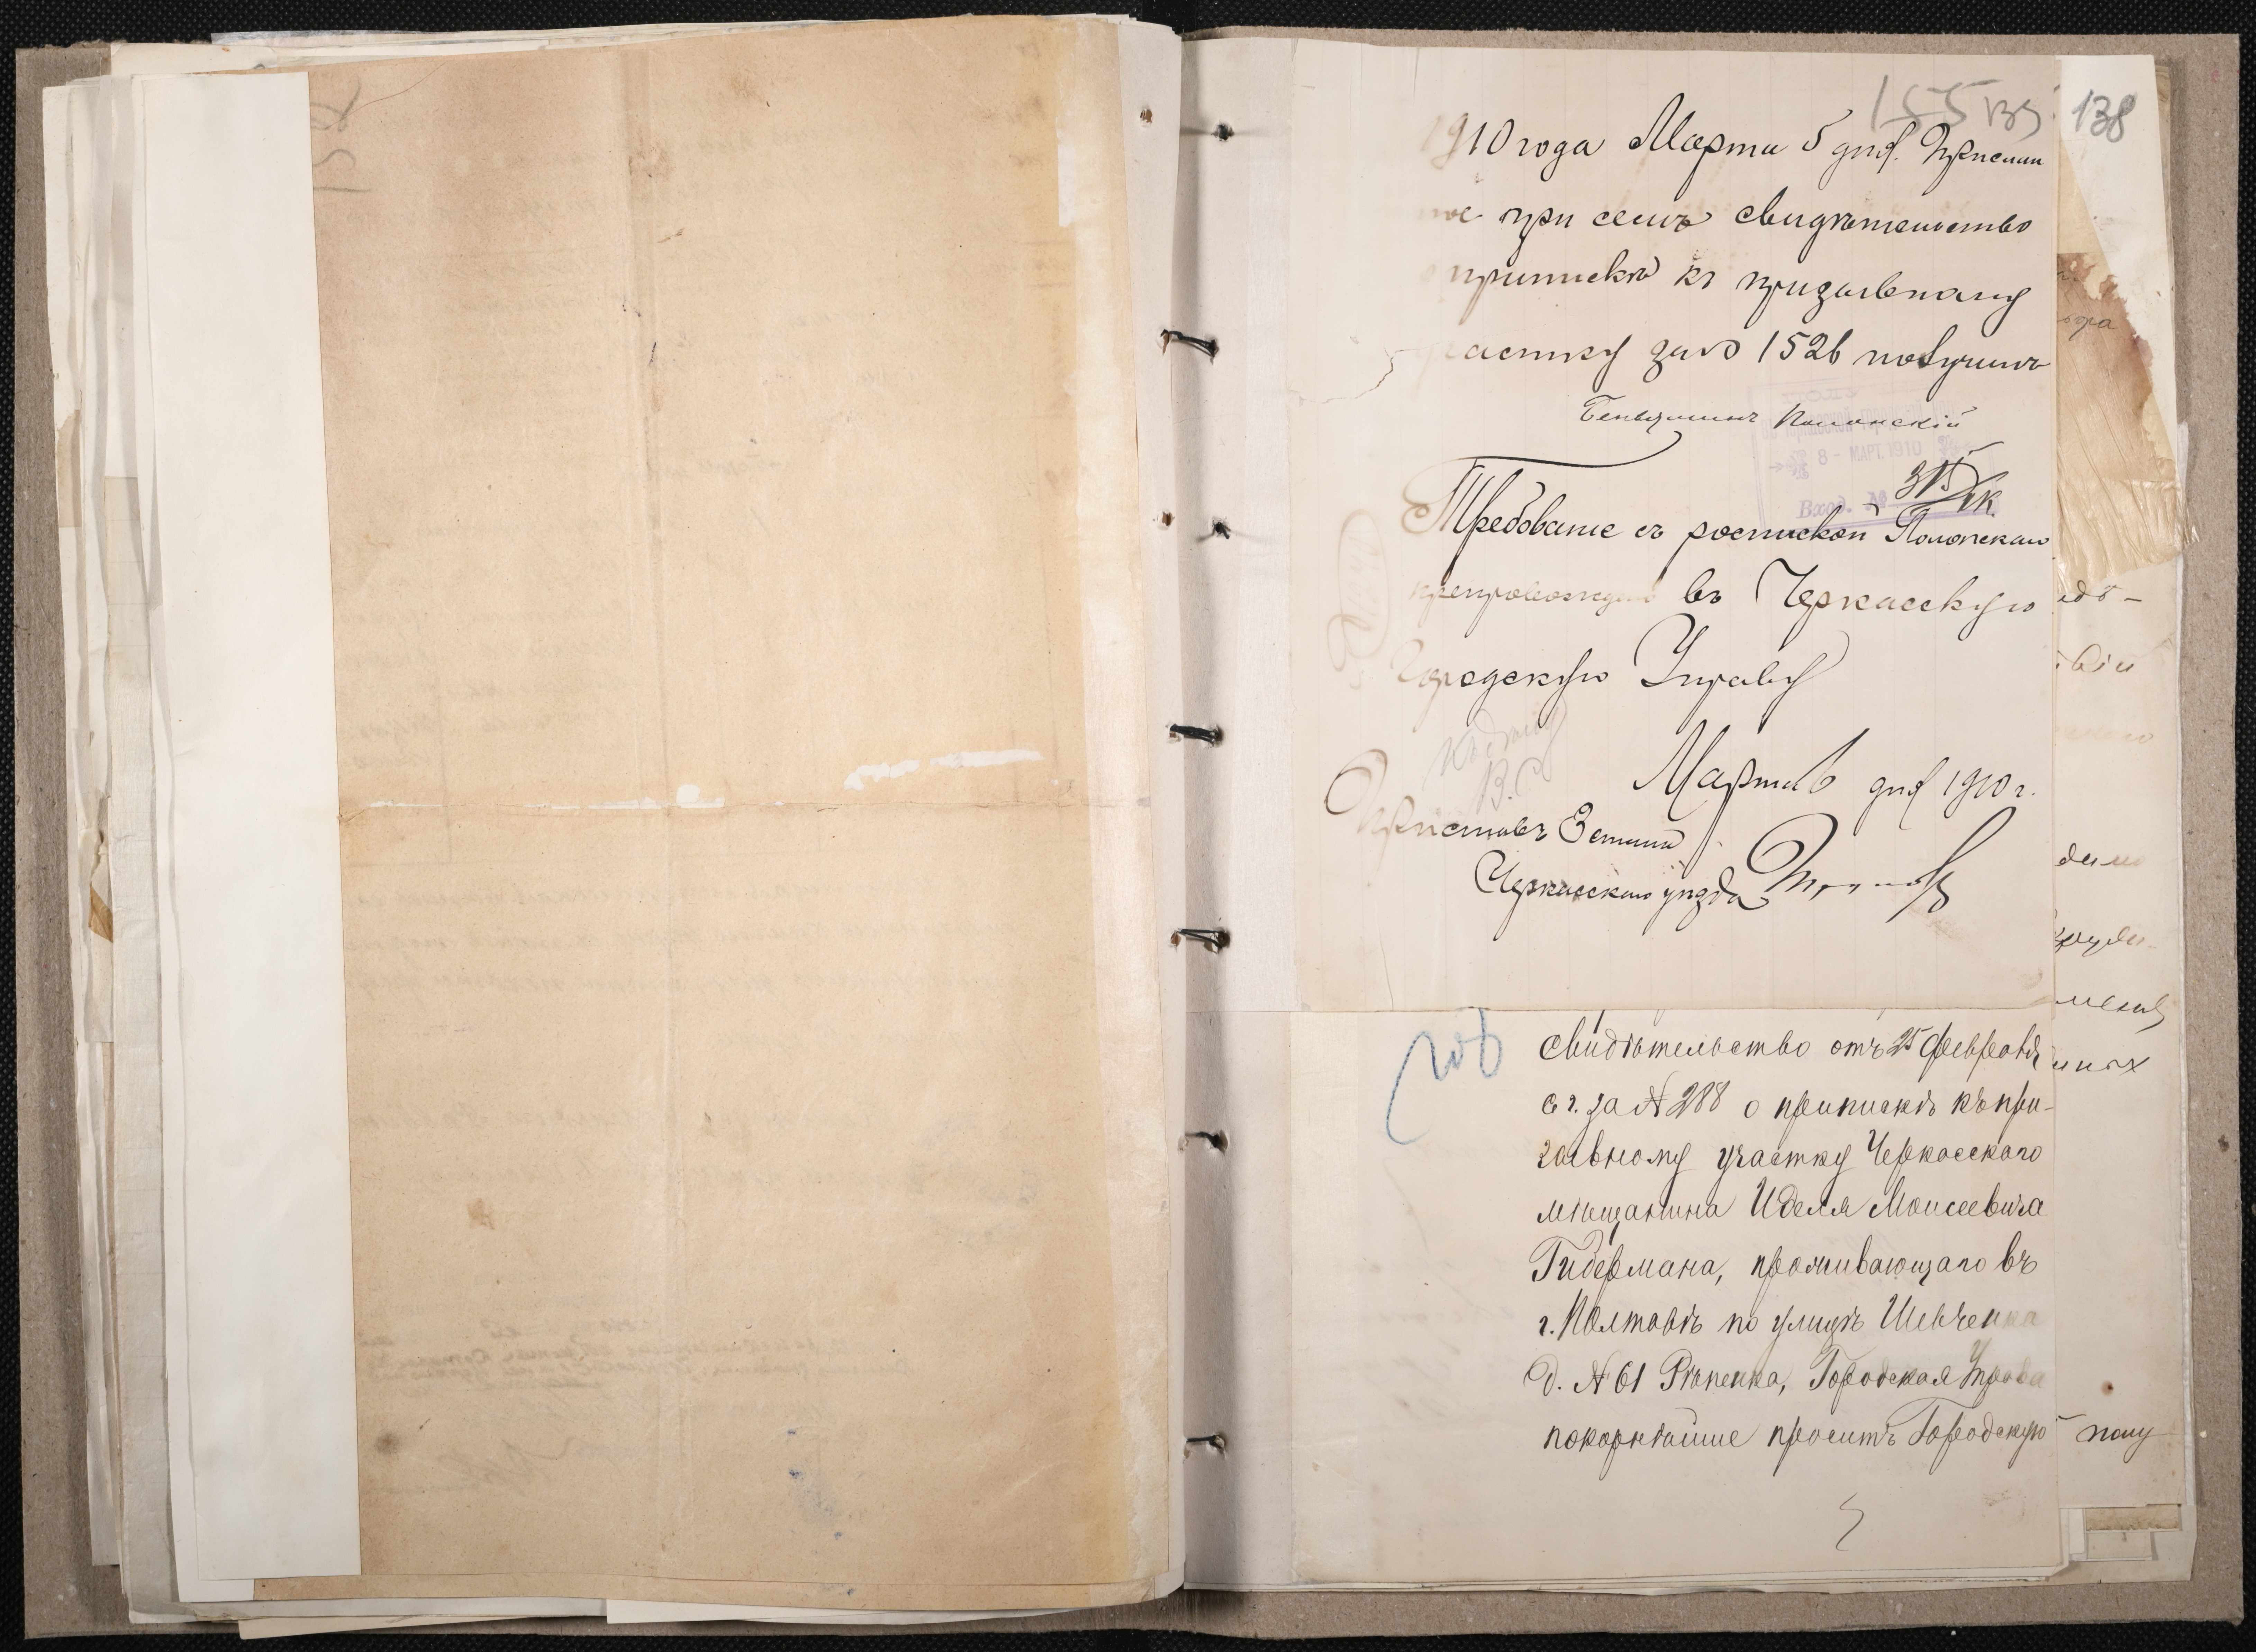 155 139 138
1910 года Марта 5 дня. Прислан
ное при семъ свидѣтельство
о припискѣ къ призывному
участку за № 1526 получилъ
Беньяминъ Полонскій
8 - МАРТ. 1910
Вход. № 315
Требованіе съ роспиской Полонскаго
препровождаю въ Черкасскую
Городскую Управу
Марта 6 дня 1910 г.
Приставъ 3 стана
Черкасскаго уѣзда
свидѣтельство отъ 25 февраля
с г. за № 288 о припискѣ къ при-
зывному участку Черкасскаго
мѣщанина Иделя Моисеевича
Гидермана, проживающаго въ
г. Полтавѣ по улицѣ Шевченка
д. № 61 Рѣпенка, Городская Управа
покорнѣйше проситъ Городскую